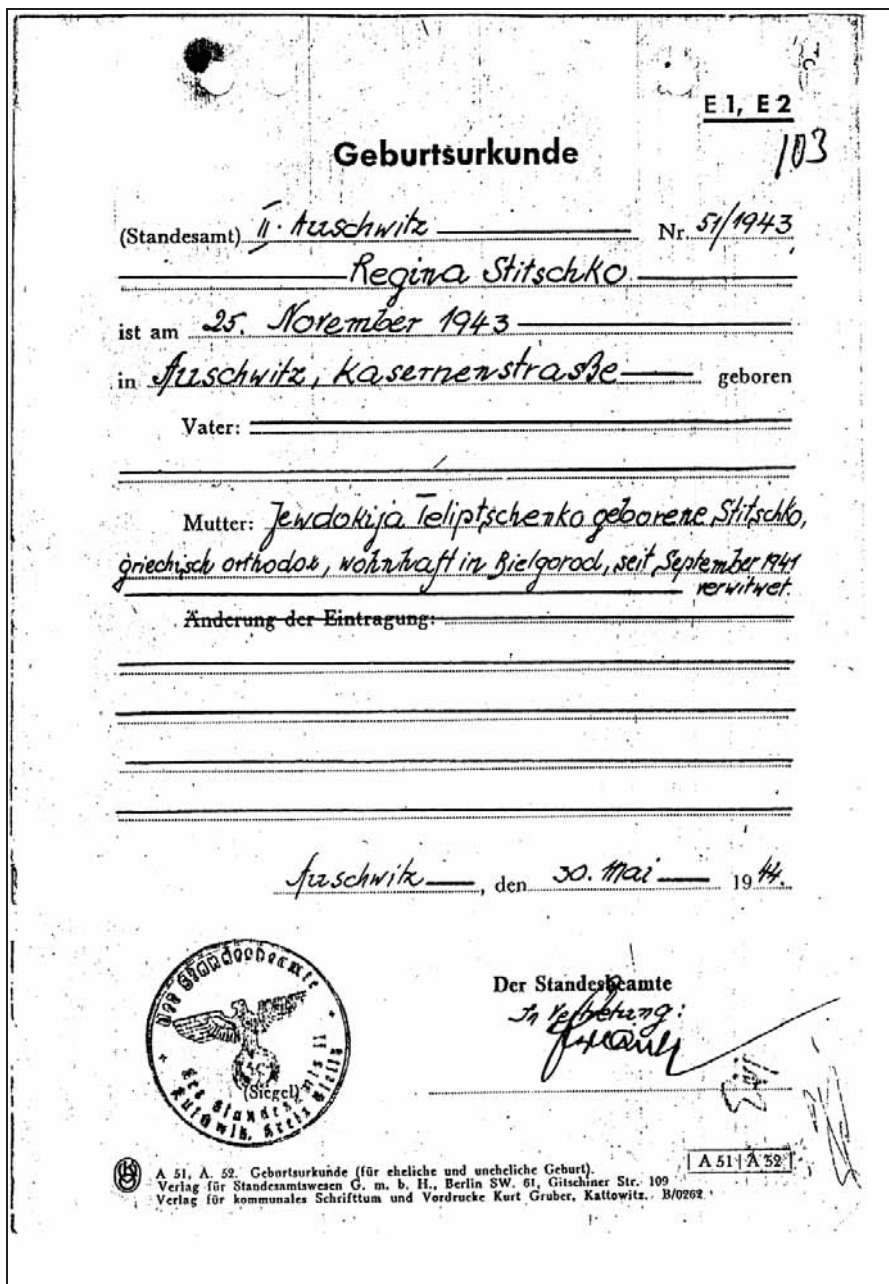 E 1, E 2
103
Geburtsurkunde
(Standesamt) II. Auschwitz Nr. 51/1943
Regina Stitschko
ist am 25. November 1943
in Auschwitz, Kasernenstraße geboren
Vater:
Mutter: Jewdokija Teliptschenko geborene Stitschko,
griechisch orthodox, wohnhaft in Bielgorod, seit September 1941
verwitwet.
Änderung der Eintragung:
Auschwitz, den 30. Mai 1944.
Der Standesbeamte
In Vertretung:
Der Standesbeamte
des Standesamts II
Auschwitz, Kreis Bielitz
(Siegel)
A 51, A. 52. Geburtsurkunde (für eheliche und uneheliche Geburt).
Verlag für Standesamtswesen G. m. b. H., Berlin SW. 61, Gitschiner Str. 109
Verlag für kommunales Schrifttum und Vordrucke Kurt Gruber, Kattowitz. B/0262
A 51 A 52